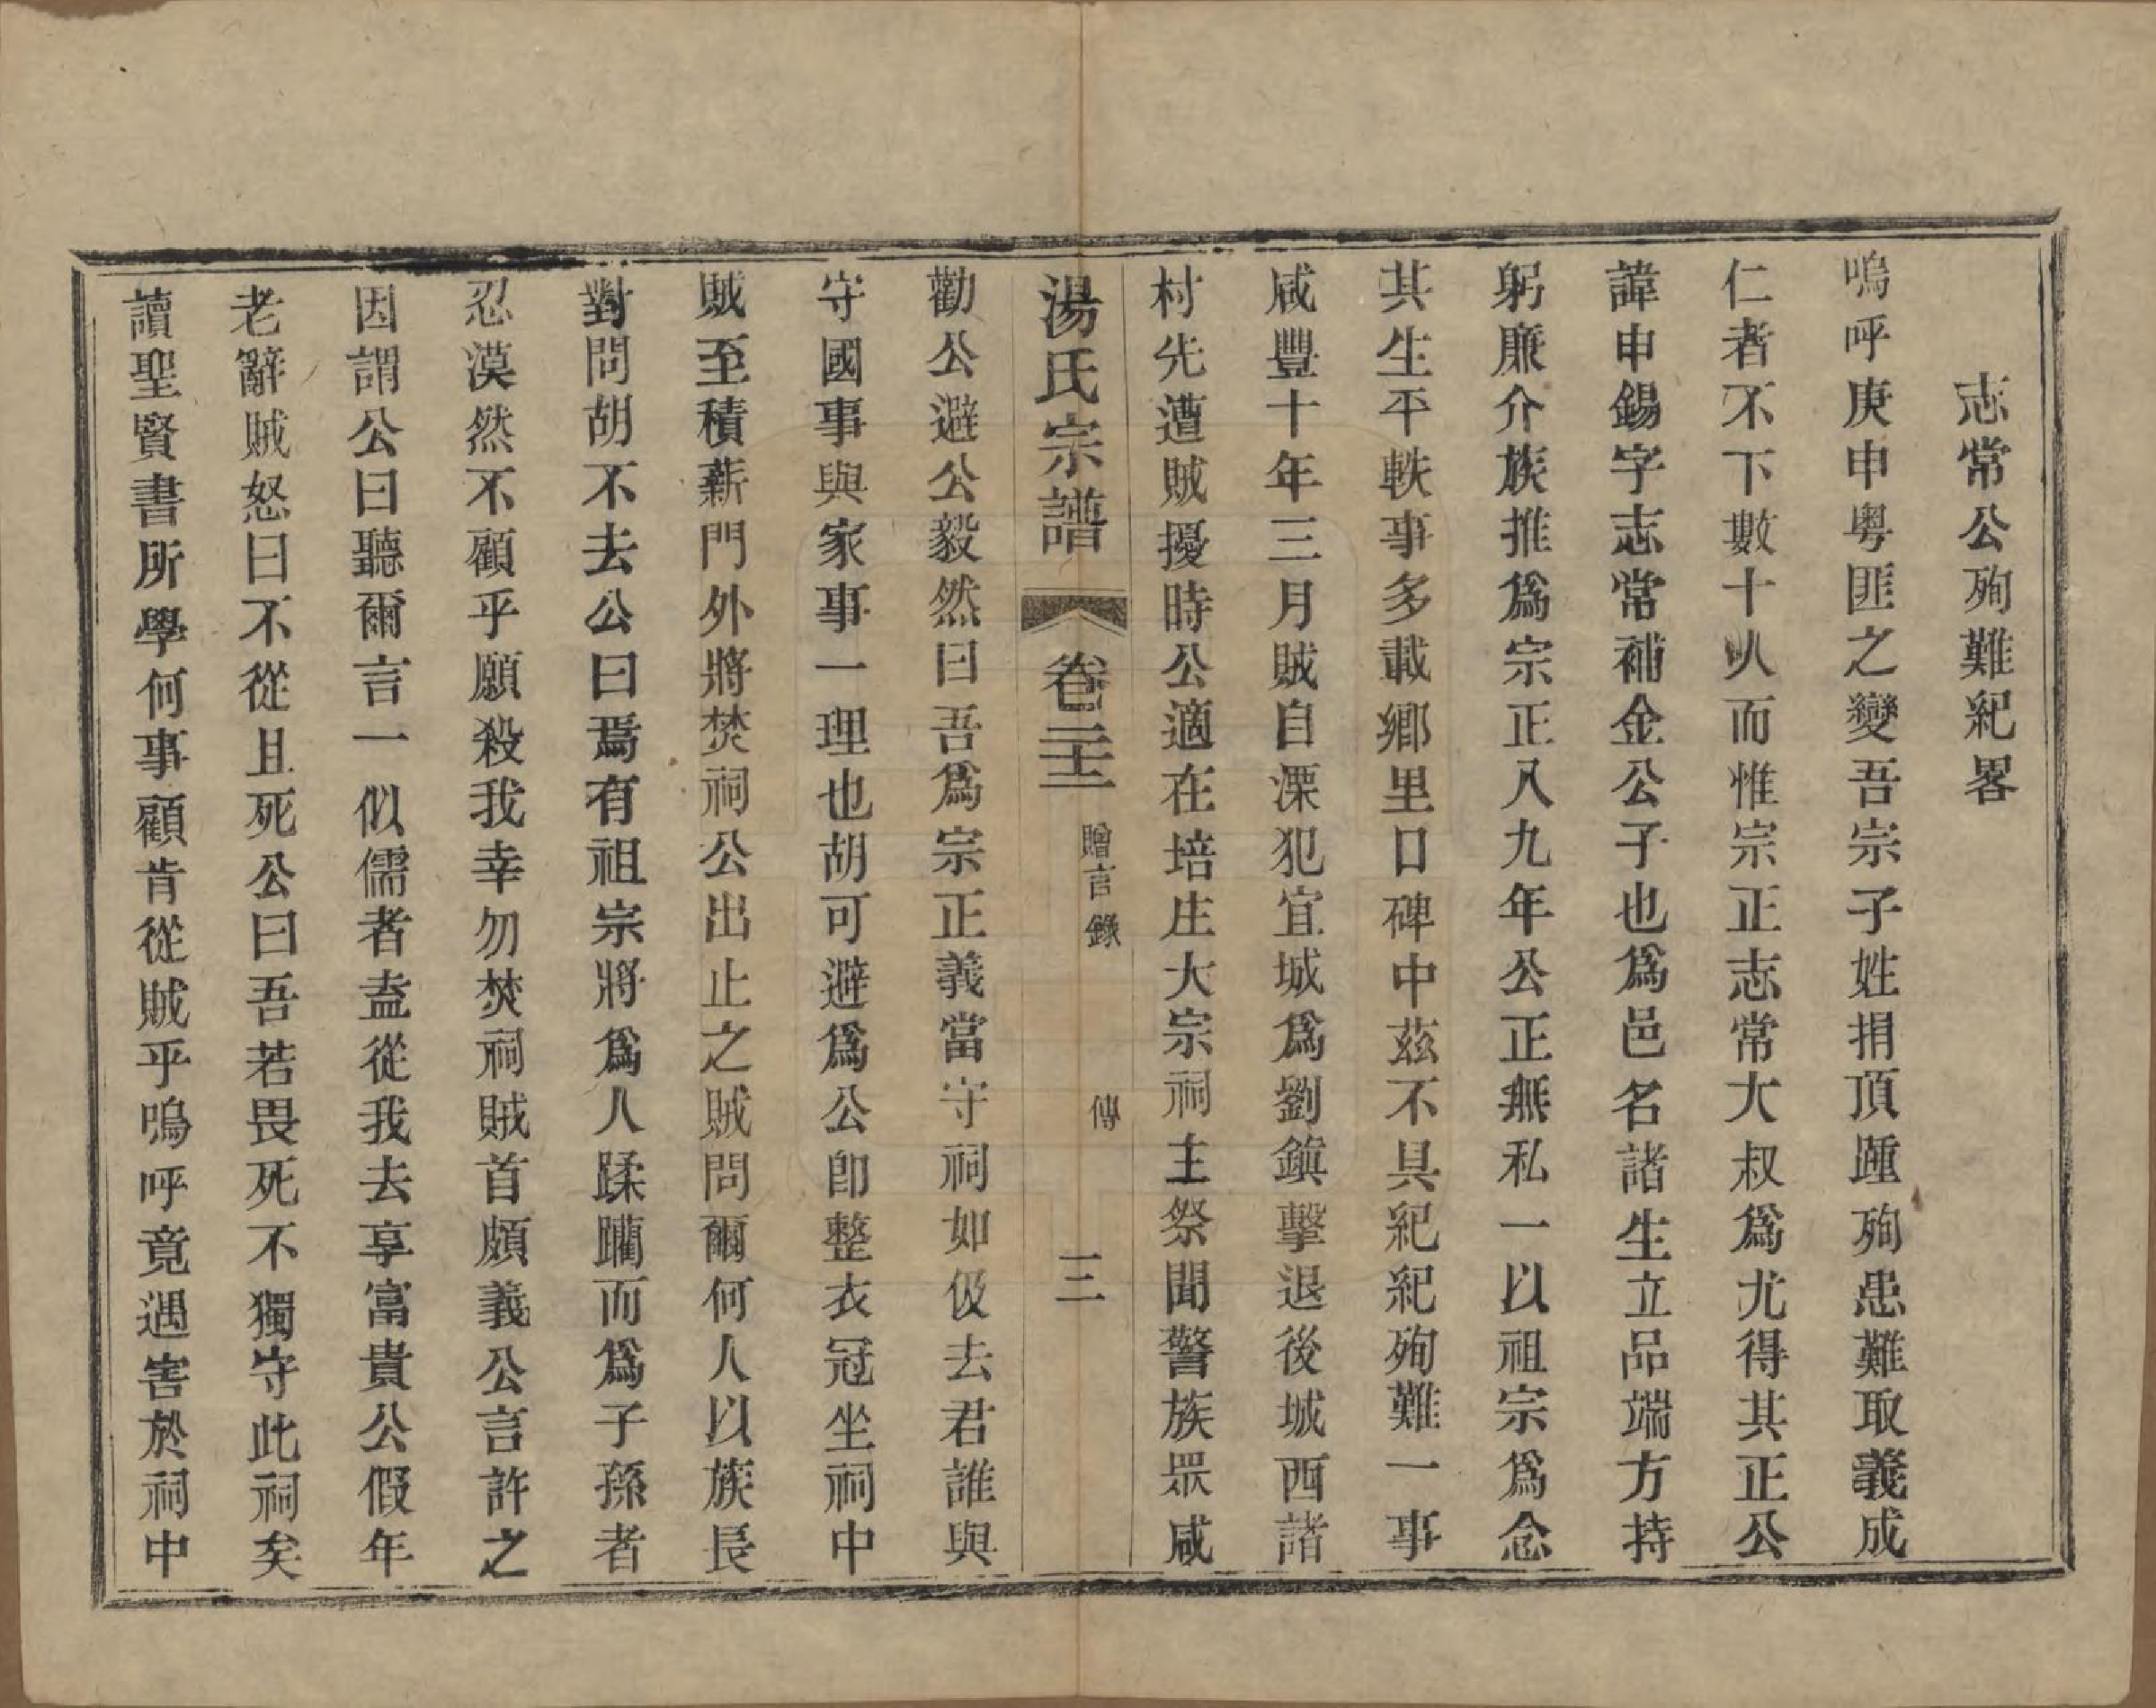 志常公殉難紀畧
嗚呼庚申粵匪之變吾宗子姓捐頂踵殉患難取義成
仁者不下數十人而惟宗正志常大叔爲尤得其正公
諱申錫字志常補金公子也爲邑名諸生立品端方持
躬廉介族推爲宗正八九年公正無私一以祖宗爲念
其生平軼事多載鄉里口碑中茲不具紀紀殉難一事
咸豐十年三月賊自溧犯宜城爲劉鎮擊退後城西諸
村先遭賊擾時公適在培庄大宗祠主祭聞警族眾咸
湯氏宗譜 卷二十二 贈言錄 傳 三
勸公避公毅然曰吾爲宗正義當守祠如伋去君誰與
守國事與家事一理也胡可避爲公卽整衣冠坐祠中
賊至積薪門外將焚祠公出止之賊問爾何人以族長
對問胡不去公曰焉有祖宗將爲人蹂躪而爲子孫者
忍漠然不顧乎願殺我幸勿焚祠賊首頗義公言許之
因謂公曰聽爾言一似儒者盍從我去享富貴公假年
老辭賊怒曰不從且死公曰吾若畏死不獨守此祠矣
讀聖賢書所學何事顧肯從賊乎嗚呼竟遇害於祠中